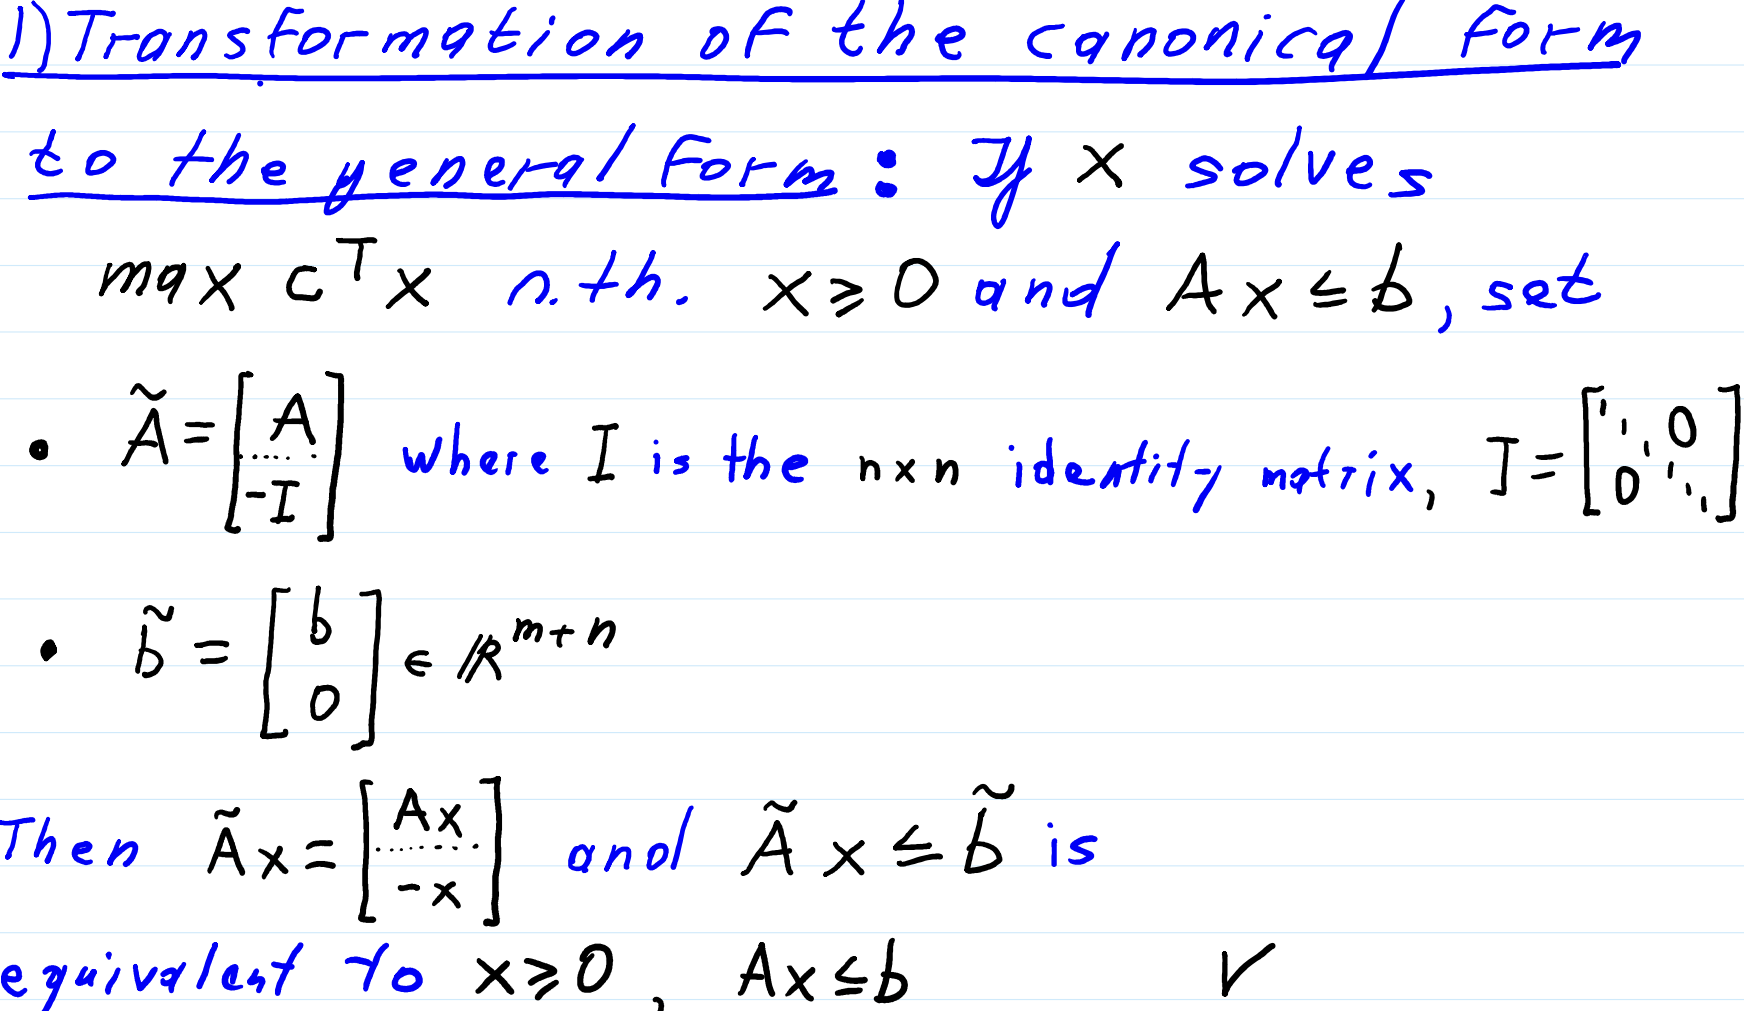 1) Transformation of the canonical form
to the general form: If x solves
max cᵀx n.th. x ≥ 0 and Ax ≤ b, set
• Ã = [A; -I] where I is the n×n identity matrix, I = [1 ⋱ 0; 0 ⋱ 1]
• b̃ = [b; 0] ∈ ℝᵐ⁺ⁿ
Then Ãx = [Ax; -x] and Ãx ≤ b̃ is
equivalent to x ≥ 0, Ax ≤ b ✓